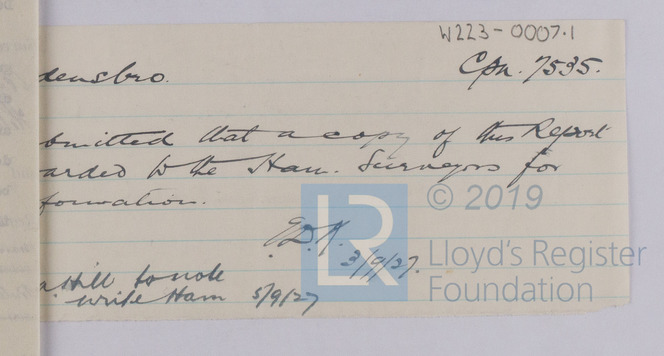 W223-0007.1
Cpn. 7535.
densbro.
bmitted that a copy of this Report
arded to the Ham. Surveyors for
formation.
3/9/27.
Hill to note
write Ham 5/9/27
LR
© 2019
Lloyd's Register
Foundation